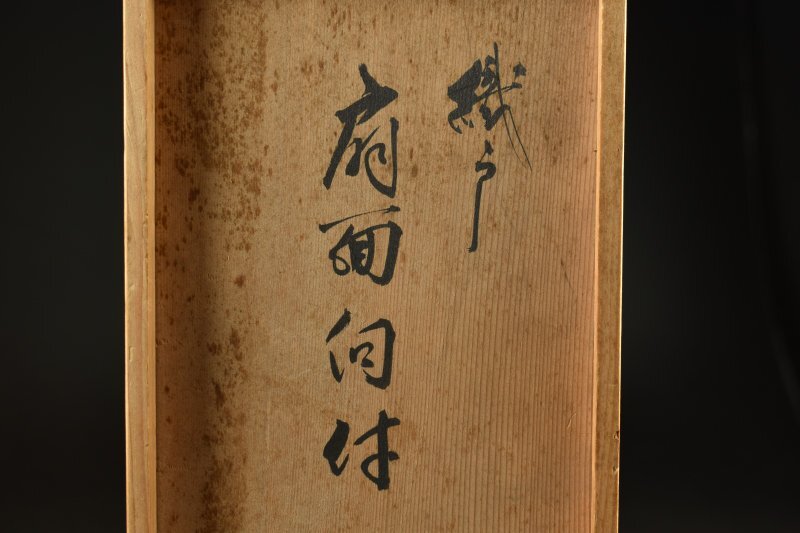 織部
扇面向付